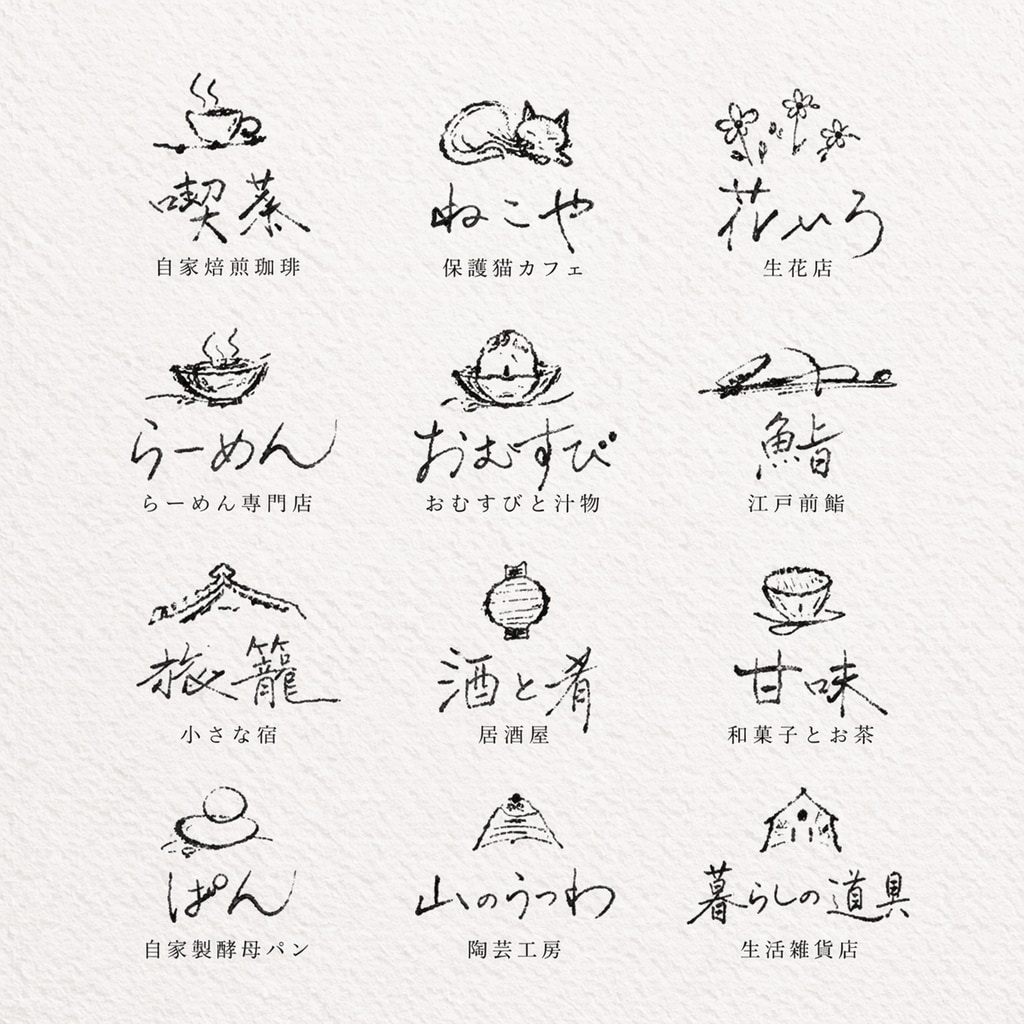 喫茶
自家焙煎珈琲
ねこや
保護猫カフェ
花いろ
生花店
らーめん
らーめん専門店
おむすび
おむすびと汁物
鮨
江戸前鮨
旅籠
小さな宿
酒と肴
居酒屋
甘味
和菓子とお茶
ぱん
自家製酵母パン
山のうつわ
陶芸工房
暮らしの道具
生活雑貨店